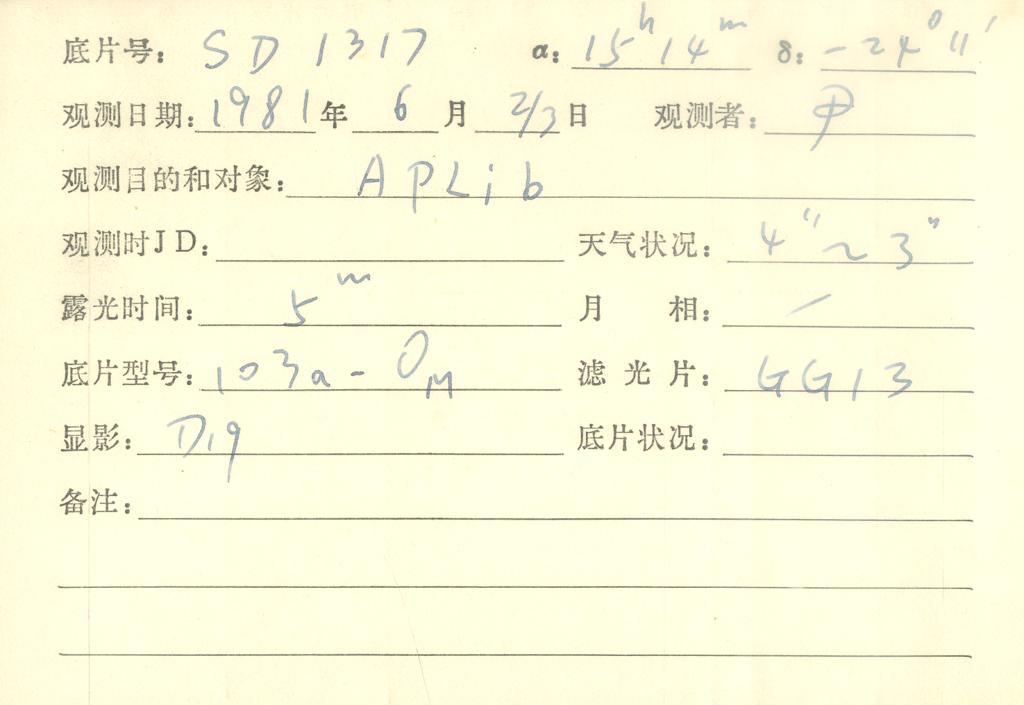 底片号: SD 1317 α: 15ʰ14ᵐ δ: -24°11′
观测日期: 1981年 6月 2/3日 观测者: 尹
观测目的和对象: APLib
观测时JD: 天气状况: 4″~3″
露光时间: 5ᵐ 月 相: —
底片型号: 103a-OM 滤光片: GG13
显影: D19 底片状况:
备注: